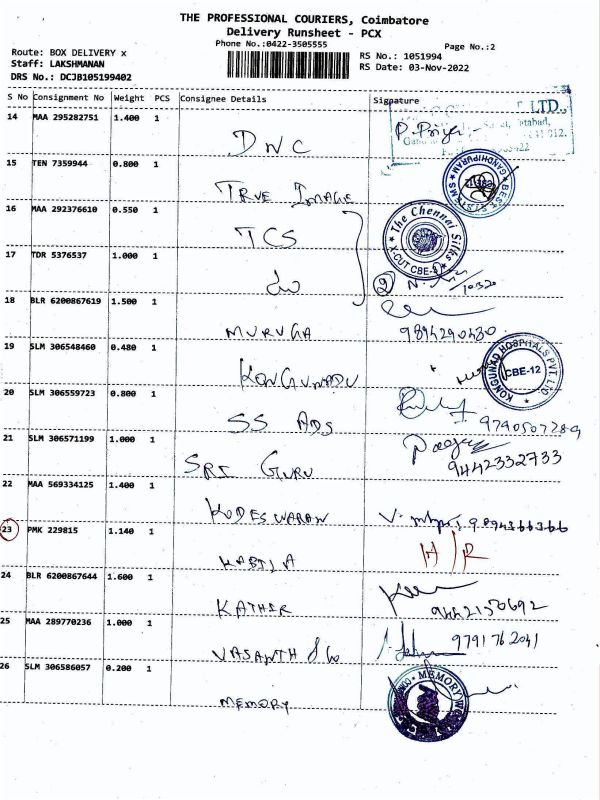 THE PROFESSIONAL COURIERS, Coimbatore
Delivery Runsheet - PCX
Phone No.:0422-3505555
Page No.:2
Route: BOX DELIVERY x
RS No.: 1051994
Staff: LAKSHMANAN
RS Date: 03-Nov-2022
DRS No.: DCJB105199402
S No Consignment No Weight PCS Consignee Details Signature
14 MAA 295282751 1.400 1
DNC
15 TEN 7359944 0.800 1
TRUE IMAGE
BEST SYSTEMS GANDHIPURAM
16 MAA 292376610 0.550 1
TCS
The Chennai Silks X-CUT CBE-
17 TDR 5376537 1.000 1
2
18 BLR 6200867619 1.500 1
MURUGA 9894290430
19 SLM 306548460 0.480 1
KONGUNADU
KONGUNAD HOSPITALS PVT LTD CBE-12
20 SLM 306559723 0.800 1
SS ADS 9790507289
21 SLM 306571199 1.000 1
SRI GURU 9442332733
22 MAA 569334125 1.400 1
KODESWARAN
23 PMK 229815 1.140 1
24 BLR 6200867644 1.600 1
KATHIR 9442150692
25 MAA 289770236 1.000 1
VASANTH & Co 9791762041
26 SLM 306586057 0.200 1
MEMORY
MEMORY